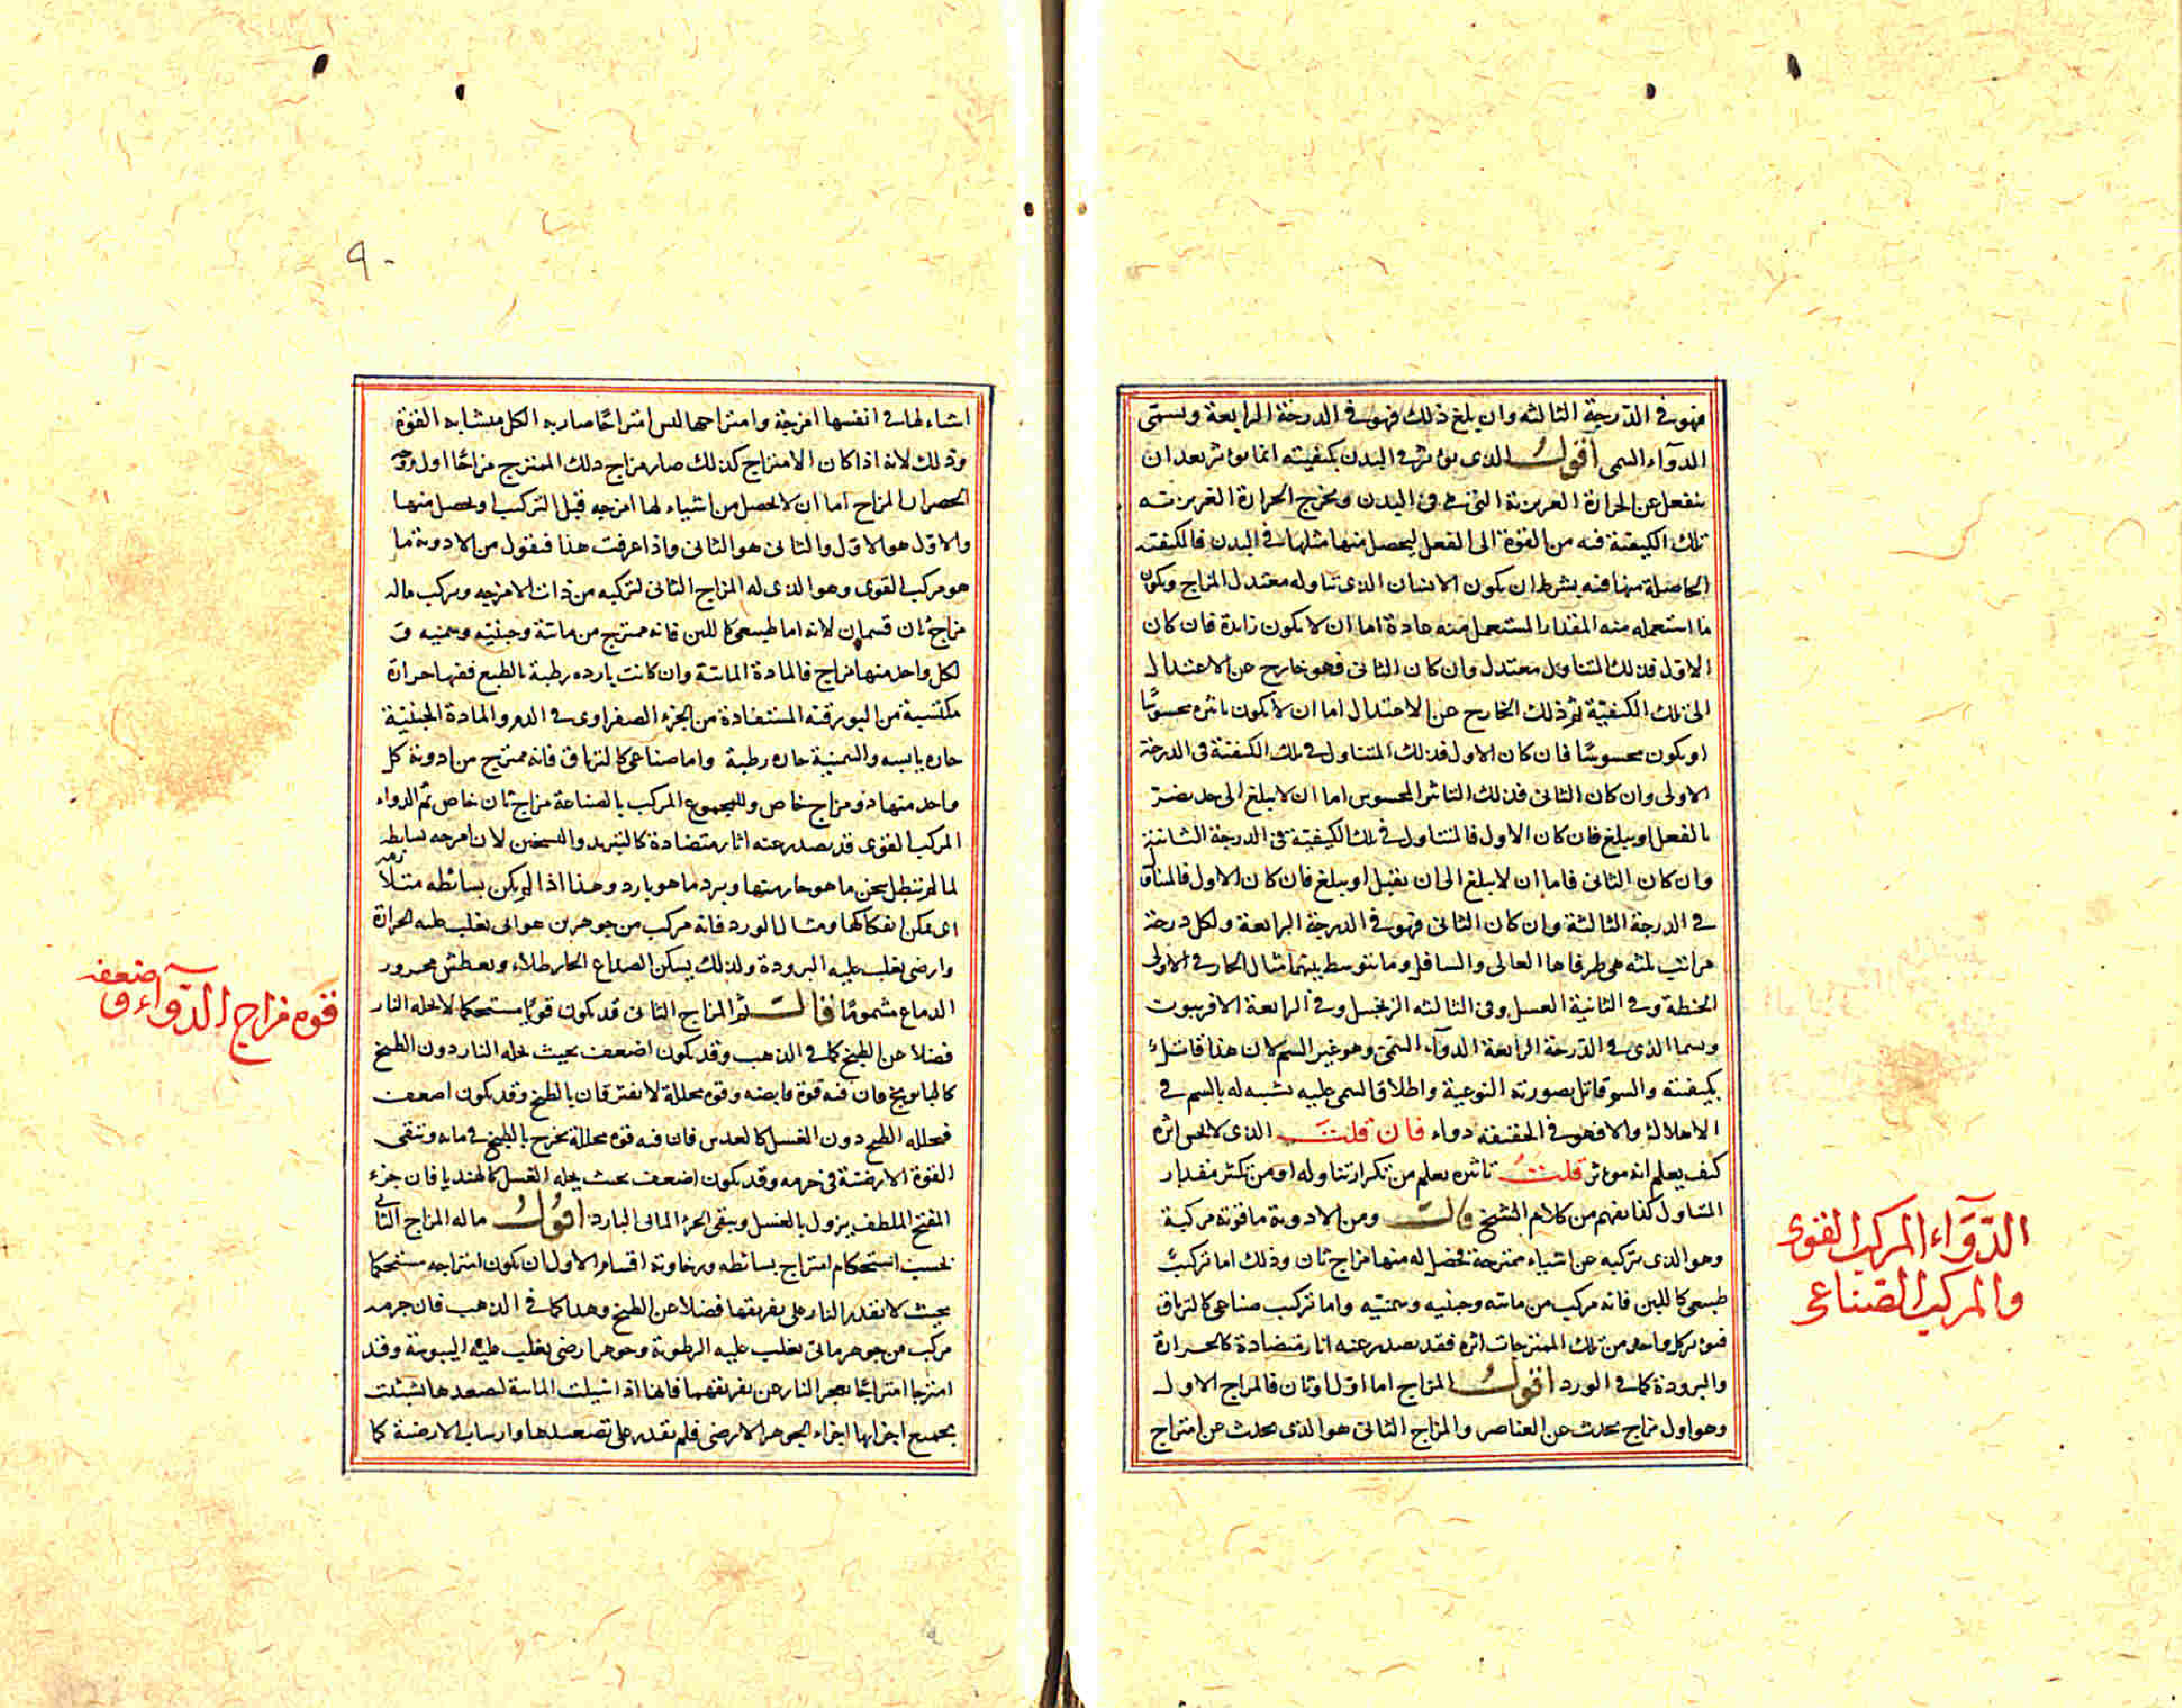 فهو في الدرجة الثالثه وان بلغ ذلك فهو في الدرجة الرابعة ويسمى
الدوآء السمى اقول الذى يؤثر في البدن بكيفيته انما يؤثر بعد ان
ينفعل عن الحرارة الغريزية التى هي في البدن ويخرج الحرارة الغريزية
تلك الكيفية فيه من القوة الى الفعل ليحصل منها مثلها في البدن فالكيفيته
الحاصلة منها فيه بشرط ان يكون الانسان الذى تناوله معتدل المزاج ويكون
ما استعمله منه المقدار المستعمل منه عادة اما ان لا يكون زايدة فان كان
الاول فذلك المتناول معتدل وان كان الثانى فهو خارج عن الاعتدال
الى تلك الكيفية ثم ذلك الخارج عن الاعتدال اما ان لا يكون تاثيره محسوسًا
او يكون محسوسًا فان كان الاول فذلك المتناول في تلك الكيفية في الدرجة
الاولى وان كان الثانى فذلك التاثير المحسوس اما ان لا يبلغ الى حد يضر
بالفعل او يبلغ فان كان الاول فالمتناول في تلك الكيفية في الدرجة الثانية
وان كان الثانى فاما ان لا يبلغ الى ان يقتل او يبلغ فان كان الاول فالمتناول
في الدرجة الثالثة وان كان الثانى فهو في الدرجة الرابعة ولكل درجة
مراتب ثلثه هي طرفاها العالى والسافل وما يتوسط بينهما مثال الحار في الاولى
الحنطة وفي الثانية العسل وفي الثالثه الزنجبيل وفي الرابعة الافربيون
ويسما الذى في الدرجة الرابعة الدوآء السمى وهو غير السم لان هذا قاتل
بكيفيته والسم قاتل بصورته النوعية واطلاق السمى عليه تشبيه له بالسم في
الاهلاك والا فهو في الحقيقه دواء فان قلت الذى لا يحس اثره
كيف يعلم انه موثر قلت تاثيره يعلم من تكرار تناوله او من تكثير مقدار
المتناول كذا يفهم من كلام الشيخ قالت ومن الادوية ما قوته مركبة
وهو الذى تركيبه عن اشياء ممتزجة فحصل له منها مزاج ثان وذلك اما تركيب
طبيعى كاللبن فانه مركب من مائيه وجبنيه وسمنيه واما تركيب صناعى كالترياق
فيؤثر كل واحد من تلك الممتزجات اثره فقد يصدر عنه اثار متضادة كالحرارة
والبرودة كما في الورد اقول المزاج اما اول او ثان فالمزاج الاول
وهو اول مزاج يحدث عن العناصر والمزاج الثانى هو الذى يحدث عن امتزاج
الدوآء المركب القوى
والمركب الصناعى
٩٠
اشياء لها في انفسها امزجة وامتزاجها ليس امتزاجًا صار به الكل متشابه القوة
وذلك لانه اذا كان الامتزاج كذلك صار مزاج ذلك الممتزج مزاجًا اول
انحصر ان المزاج اما ان لا يحصل من اشياء لها امزجه قبل التركيب او يحصل منها
والاول هو الاول والثانى هو الثانى واذا عرفت هذا فنقول من الادوية ما
هو مركب القوى وهو الذى له المزاج الثانى لتركيبه من ذات الامزجه وتركيب ماله
مزاج ثان قسمان لانه اما طبيعى كاللبن فانه ممتزج من مائية وجبنيته وسمنيه و
لكل واحد منها مزاج فالمادة المائية وان كانت بارده رطبة بالطبع ففيها حرارة
مكتسبة من البورقية المستفادة من الجزء الصفراوى في الدم والمادة الجبنية
حاره يابسه والسمنية حاره رطبة واما صناعى كالترياق فانه ممتزج من ادوية كل
واحد منها ذو مزاج خاص وللمجموع المركب بالصناعة مزاج ثان خاص ثم الدواء
المركب القوى قد يصدر عنه اثار متضادة كالتبريد والتسخين لان امزجه بسائطه
لما لم تبطل يسخن ما هو حار منها ويبرد ما هو بارد وهذا اذا لم يكن بسائطه
اى يمكن انفكاكها ومثال الورد فانه مركب من جوهرين هوائى يغلب عليه الحرارة
وارضى يغلب عليه البرودة ولذلك يسكن الصداع الحار طلاء ويعطش محرور
الدماغ مشمومًا قالت ثم المزاج الثانى قد يكون قويًا مستحكما لا يحله النار
فضلا عن الطبخ كما في الذهب وقد يكون اضعف بحيث يحله النار دون الطبخ
كالبابونج فان فيه قوة قابضه وقوه محللة لا يفترقان بالطبخ وقد يكون اضعف
فيحلله الطبخ دون الغسل كالعدس فان فيه قوه محللة يخرج بالطبخ في مائه وتبقى
القوة الارضية في جرمه وقد يكون اضعف بحيث يحله الغسل كالهنديا فان جزء
المفتح الملطف يزول بالغسل ويبقى الجزء المائى البارد اقول ماله المزاج الثانى
بحسب استحكام امتزاج بسائطه ورخاوته اقسام الاول ان يكون امتزاجه مستحكما
بحيث لا يقدر النار على تفريقها فضلا عن الطبخ وهذا كما في الذهب فان جرمه
مركب من جوهر مائى يغلب عليه الرطوبة وجوهر ارضى يغلب عليه اليبوسة وقد
امتزجا امتزاجًا يعجز النار عن تفريقهما فانها اذا اسيلت المائية لتصعدها تشبثت
بجميع اجزائها اجزاء الجوهر الارضى فلم تقدر على تصعيدها وارساب الارضية كما
قوه مزاج الدوآء وضعفه